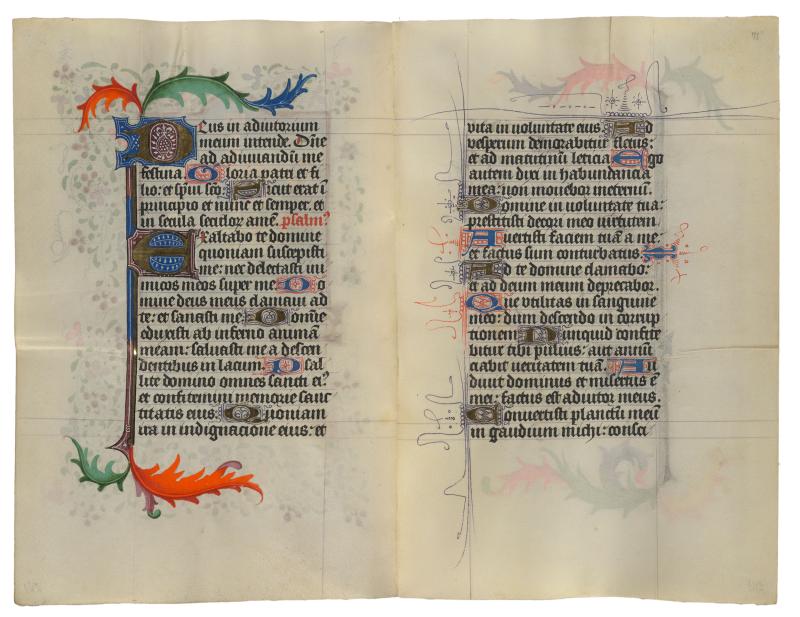 Deus in adiutorium
meum intende. Dn̄e
ad adiuuandū me
festina. Gloria patri et fi
lio: et spūi sc̄o. Sicut erat ī
principio et nunc et semper. et
in secula seculor amē. psalmꝰ
Exaltabo te domine
quoniam suscepisti
me: nec delectasti ini
micos meos super me. Do
mine deus meus clamaui ad
te: et sanasti me. Domine
eduxisti ab inferno animā
meam: saluasti me a descen
dentibus in lacum. Psal
lite domino omnes sancti eiꝰ
et confitemini memorie sanc
titatis eius. Quoniam
ira in indignacione eius: et
vita in uoluntate eius. Ad
vesperum demorabitur fletus:
et ad matutinū leticia. Ego
autem dixi in habundancia
mea: non mouebor ineternū.
Domine in uoluntate tua:
prestitisti decori meo uirtutem.
Auertisti faciem tuā a me:
et factus sum conturbatus.
Ad te domine clamabo:
et ad deum meum deprecabor.
Que utilitas in sanguine
meo: dum descendo in corrup
tionem. Numquid confite
bitur tibi puluis: aut annū
ciabit ueritatem tuā. Au
diuit dominus et misertus ē
mei: factus est adiutor meus.
Conuertisti planctū meū
in gaudium michi: consci